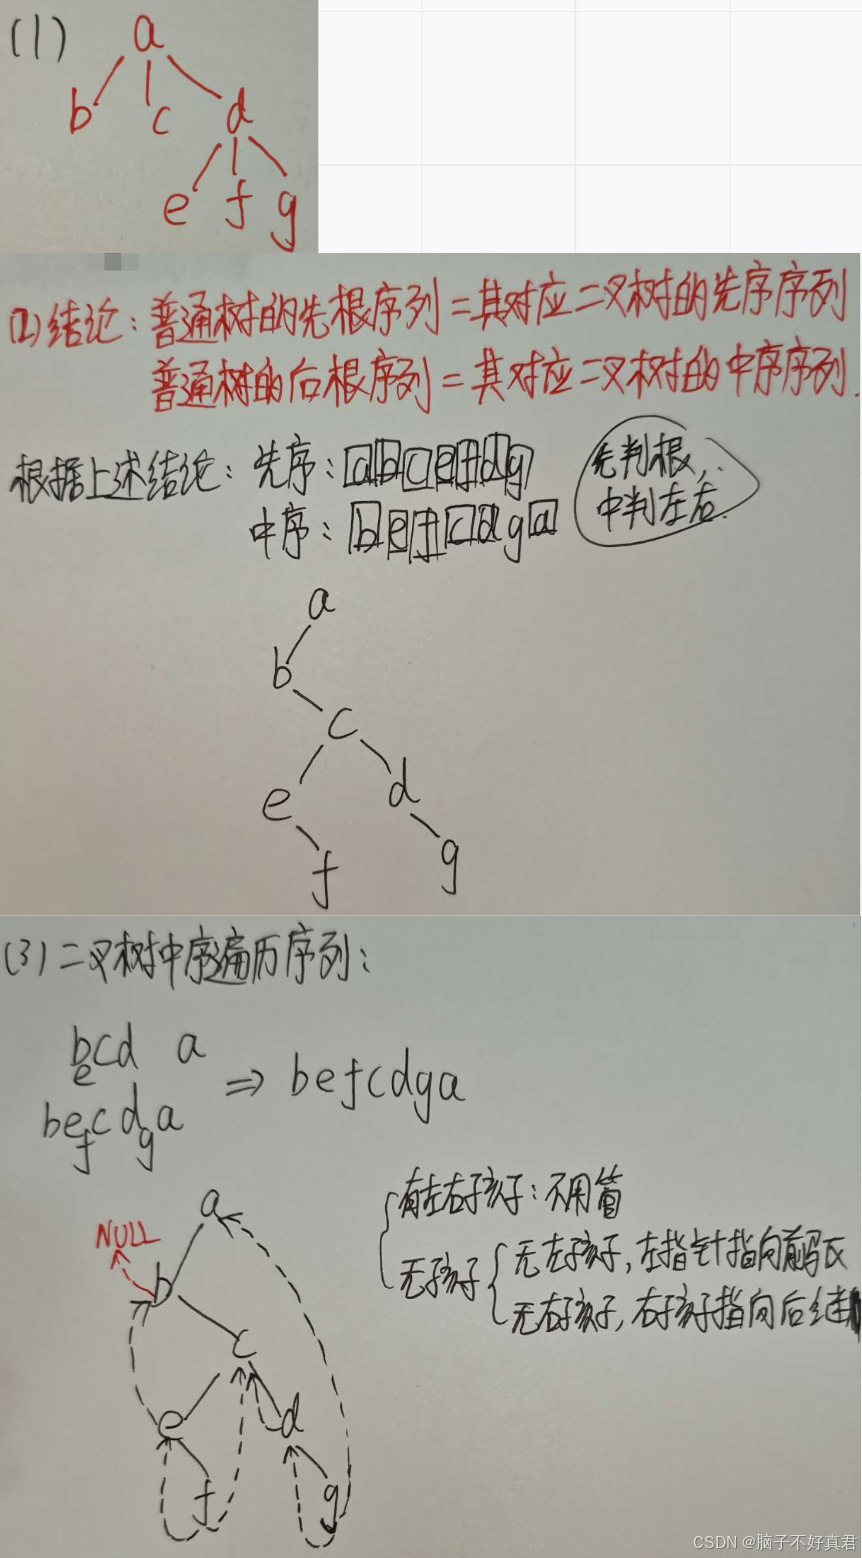 (1) a
b c d
e f g
(2)结论：普通树的先根序列=其对应二叉树的先序序列
普通树的后根序列=其对应二叉树的中序序列.
根据上述结论：先序：abcefdg
中序：befcdga
先判根,
中判左右.
a
b
c
e d
f g
(3)二叉树中序遍历序列：
bcd a
e
becda
f g
⇒ befcdga
有左右子孩子：不用管
无孩子
无左孩子,左指针指向前驱
无右子孩子,右子孩子指向后继
a
NULL
b
c
e d
f g
CSDN @脑子不好真君